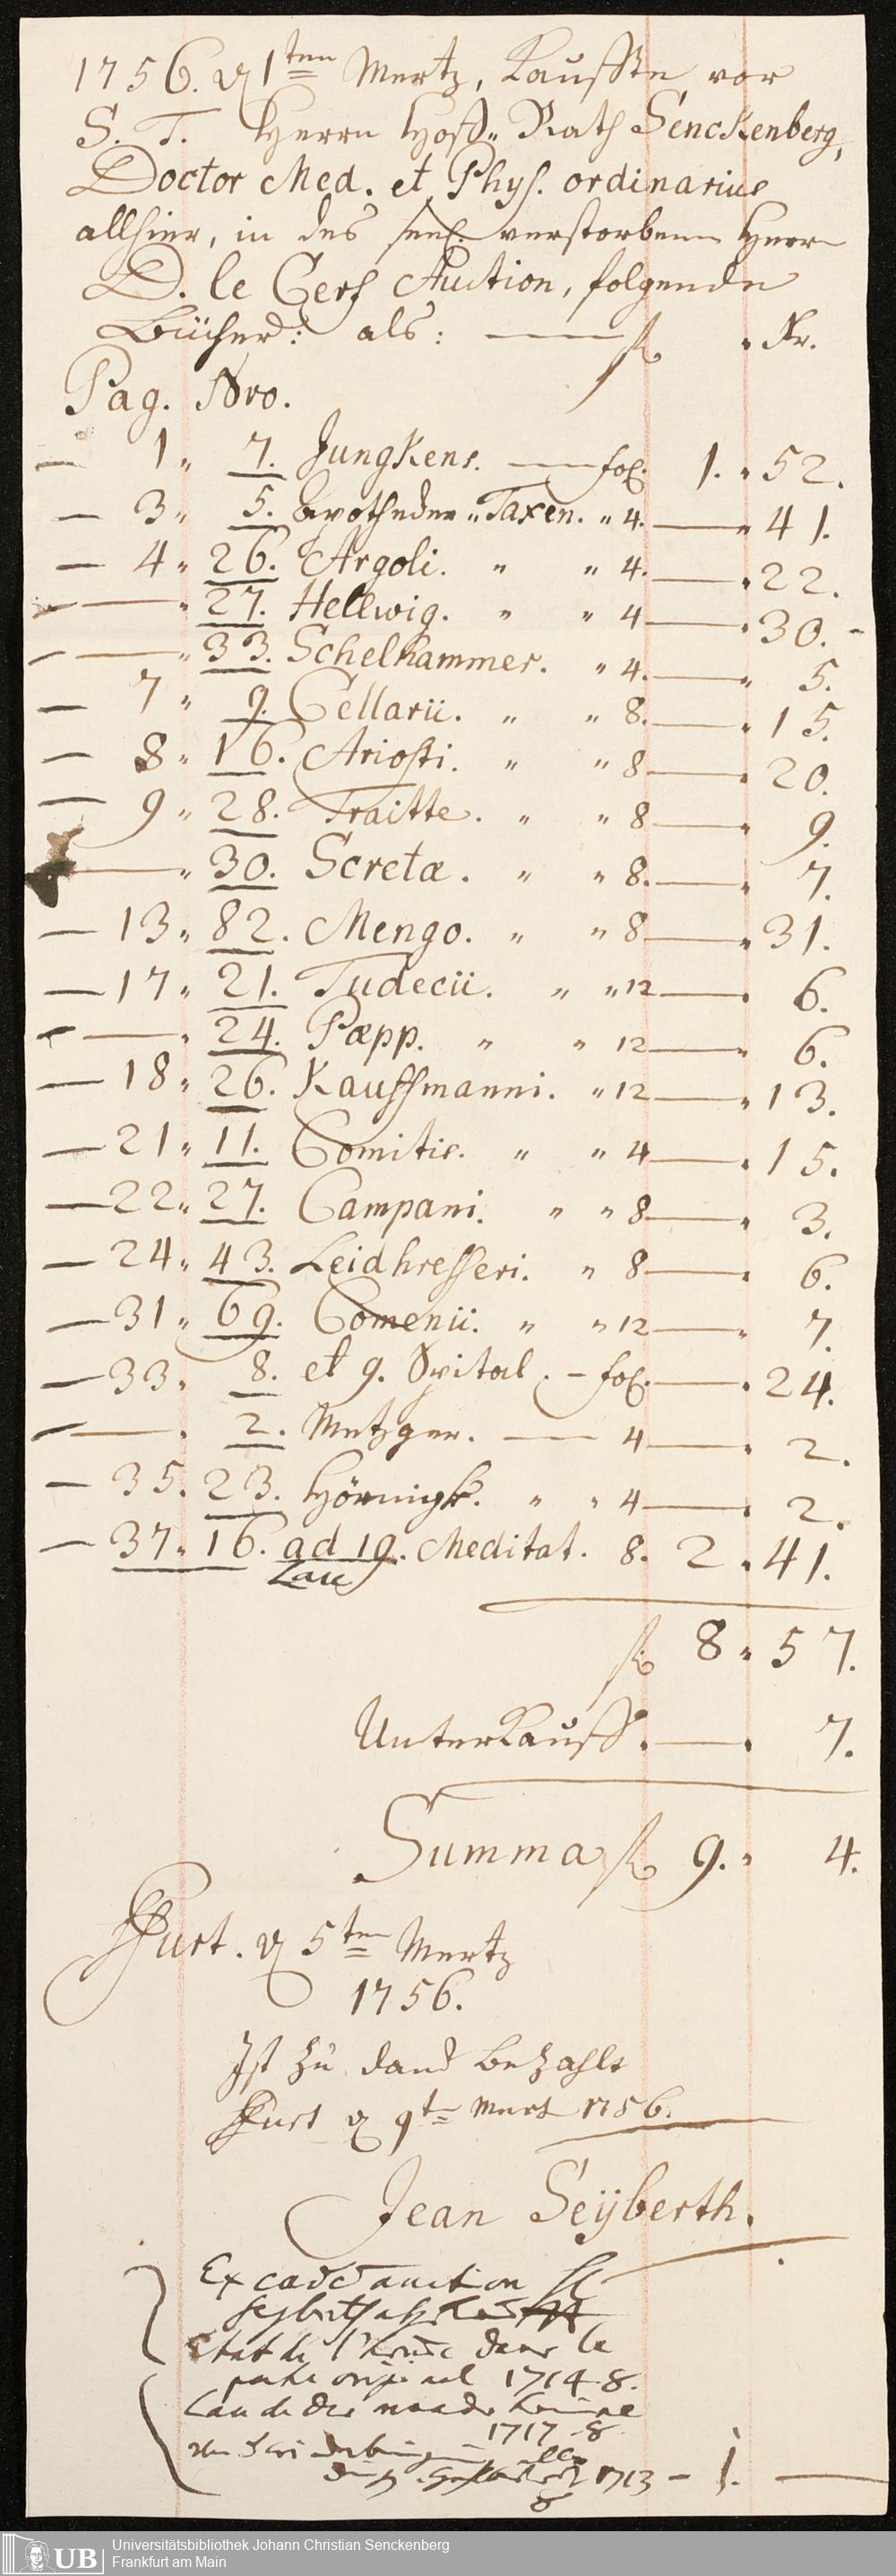 1756. d 1ten Mertz, Kauffte vor
S. T. Herrn Hoff" Rath Senckenberg,
Doctor Med. et Phys. ordinarius
allhier, in des seel. verstorbenen Herrn
D. le Cerf Auction, folgende
Bücher: als: — fl " Kr.
Pag. Nro.
— 1 " 7. Jungkens. — fol. 1. " 52.
— 3 " 5. Apothecker " Taxen. " 4. — " 41.
— 4 " 26. Argoli. " " 4. — " 22.
— — " 27. Hellwig. " " 4 — " 30. -
— — " 33. Schelhammer. " 4. — " 5.
— 7 " 9. Cellarii. " " 8. — " 15.
— 8 " 16. Ariosti. " " 8 — " 20.
— 9 " 28. Traitte. " " 8 — " 9.
— " 30. Scretæ. " " 8. — " 7.
— 13 " 82. Mengo. " " 8 — " 31.
— 17 " 21. Tudecii. " " 12 — " 6.
— — " 24. Pæpp. " " 12 — " 6.
— 18 " 26. Kauffmanni. " 12 — " 13.
— 21 " 11. Comitis. " " 4 — " 15.
— 22 " 27. Campani. " " 8 — " 3.
— 24 " 43. Leidhresseri. " 8 — " 6.
— 31 " 69. Comenii. " " 12 — " 7.
— 33 " 8. et 9. Spital. — fol. — " 24.
— — " 2. Metzger. — 4 — " 2.
— 35. 23. Hörnigk. " " 4 — " 2.
— 37 " 16. ad 19. Meditat. 8. 2 " 41.
Lau
fl 8 " 57.
Unterkauff. — " 7.
Summa fl 9. " 4.
Ffurt. d 5ten Mertz
1756.
Ist zu danck bezahlt
Ffurt d 9t Mert 1756.
Jean Seÿberth.
Ex auction
Etat de dans le
original 1714. 8.
1717. 8
1713 — 1. —
8
UB Universitätsbibliothek Johann Christian Senckenberg
Frankfurt am Main